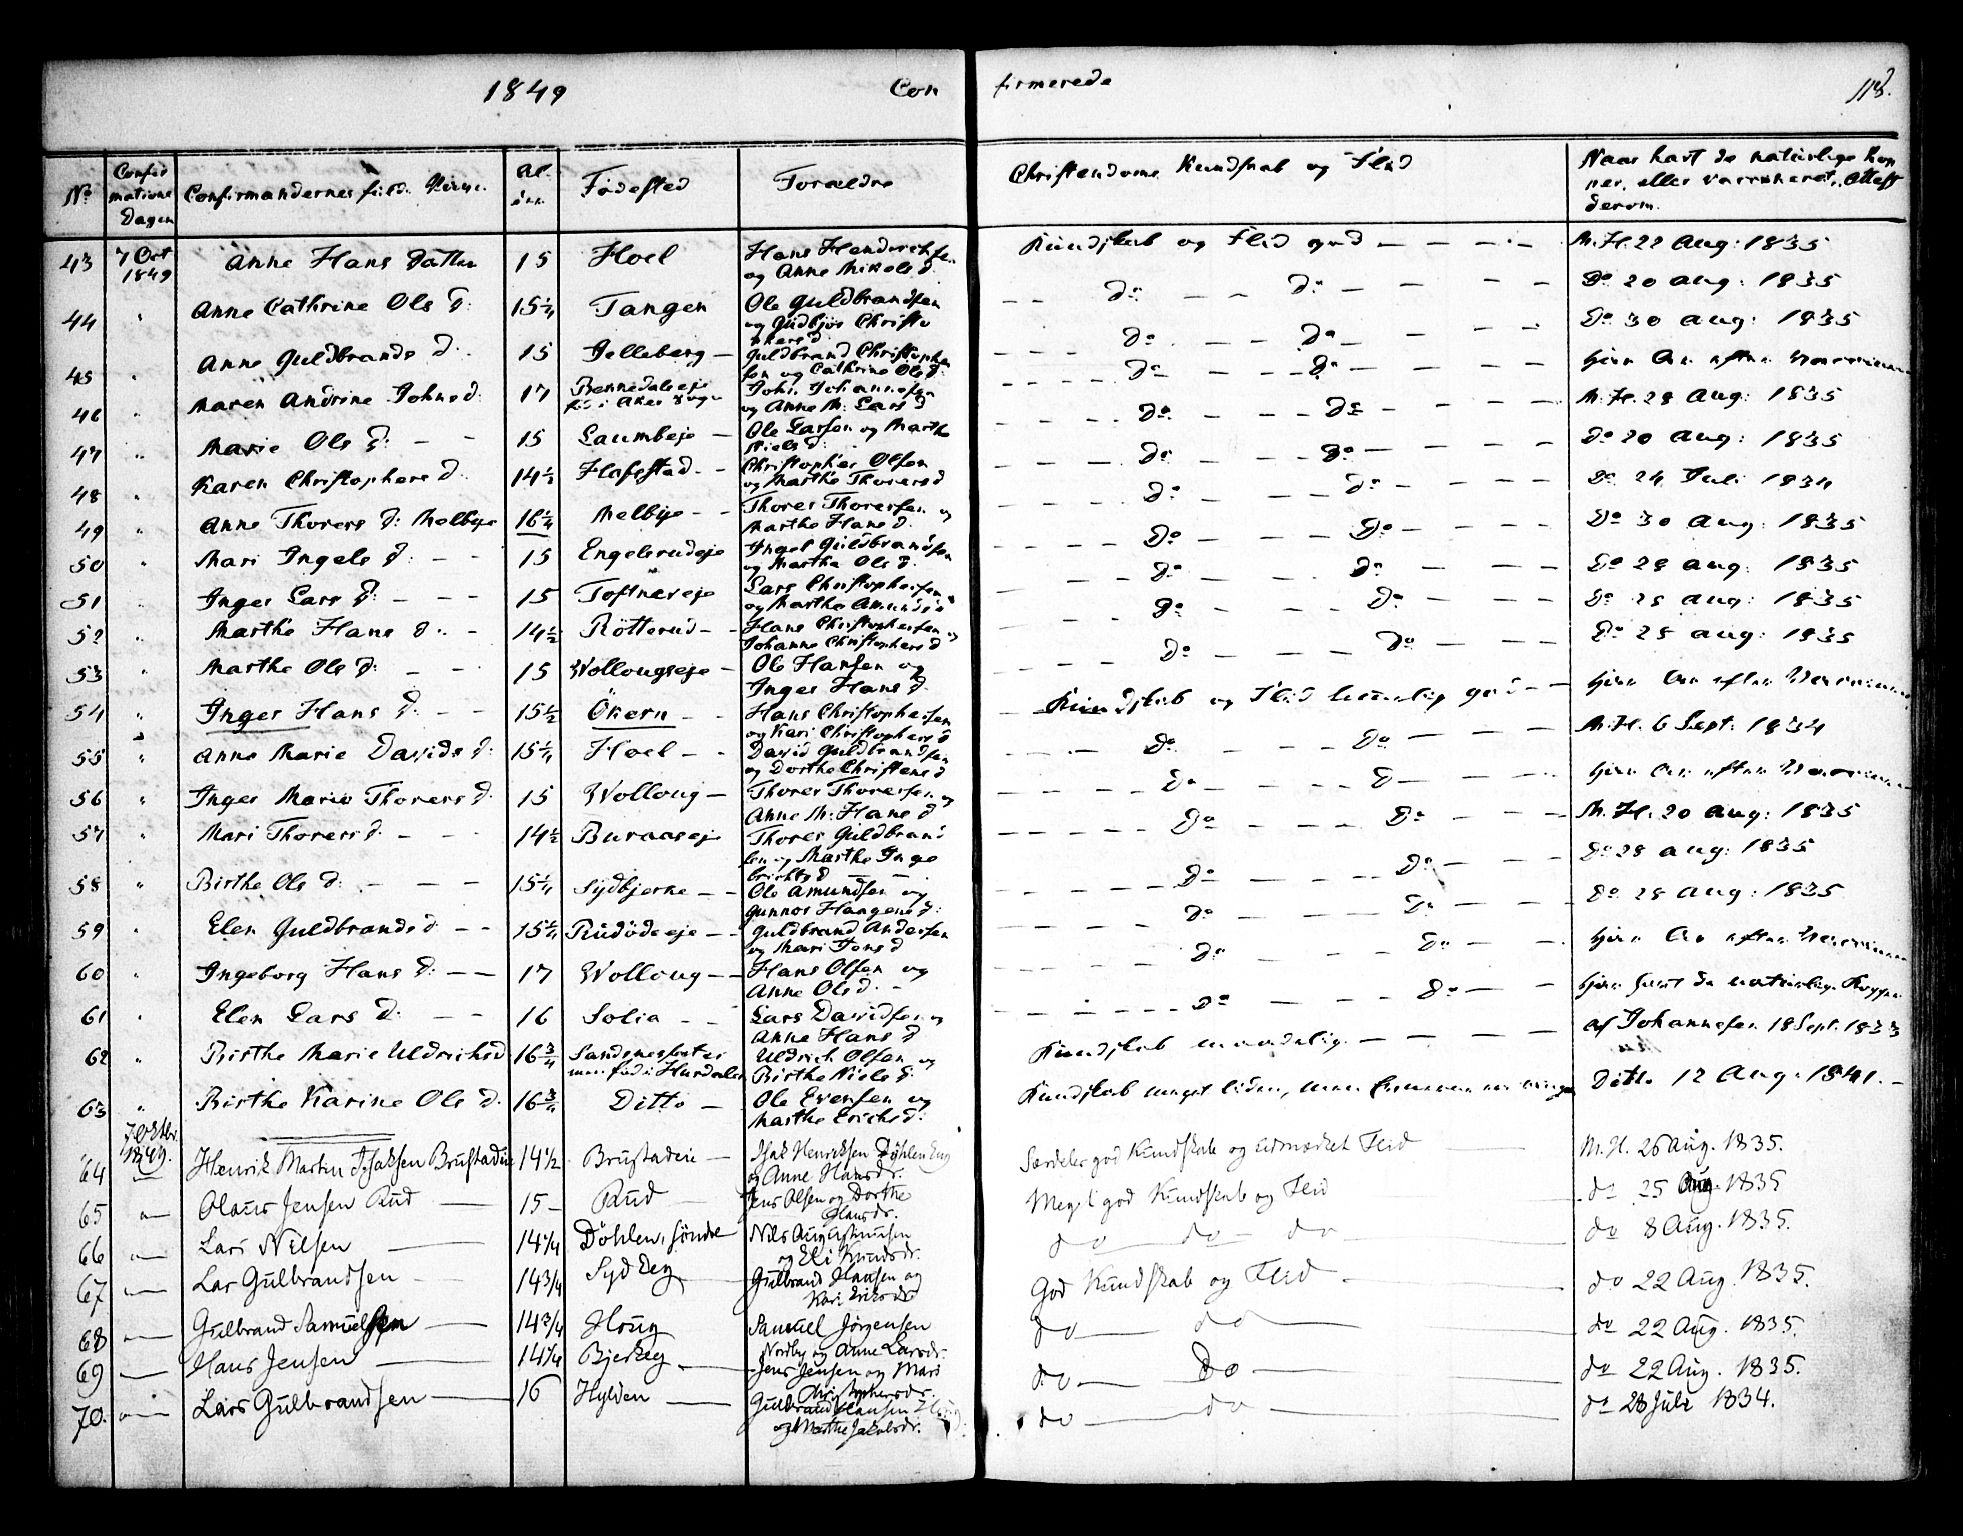 1849 Con firmerede 113.
No Confirmations Dagen Confirmandernes fulde Navne. Al- der. Fødested Forældre Christendoms Kundskab og Flid Naar havt de naturlige Kop
per, eller vaccineret, Attest
derom.
43 7 Oct 1849 Anne Hans Datter 15 Hoel Hans Hendrichsen Kundskab og Flid god — — — M.H. 22 Aug: 1835
og Anne Mikels d.
44 " Anne Cathrine Ols d: 15¼ Tangen Ole Guldbrandsen — — do — — do — — — do 20 Aug: 1835
og Gudbjør Christo
phers d.
45 " Anne Guldbrands d. 15 Jelleberg — Guldbrand Christophe — — do — — do — — do 30 Aug: 1835
sen og Cathrine Ols d.
46 " Maren Andrine Johns d. 17 Bennedals eje Johs. Johannesen — — do — — do — —
fød i Aker Sogn og Anne M. Lars d
47 " Marie Ols d: — — 15 Laumbeje — Ole Larsen og Marthe — — do — — do — — M.H. 28 Aug: 1835
Niels d.
48 " Karen Christophers d. 14½ Hofsstad — Christopher Olsen — — do — — do — — do 20 Aug: 1835
og Marthe Thorers d
49 " Anne Thorers d: Melbye 16¼ Melbye — — Thorer Thorersen og — — do — — do — — do 24 Juli 1834
Marthe Hans d.
50 " Mari Ingels d. — — 15 Engelsrudeje Ingel Guldbrandsen — — do — — do — — do 30 Aug: 1835
og Marthe Ols d.
51 " Inger Lars d. — — — 15 Toftnereje Lars Christophersen — — do — — do — — do 28 Aug: 1835
og Marthe Amunds d
52 " Marthe Hans d. — 14½ Røtterud — — Hans Christophersen og — — do — — do — — do 28 Aug: 1835
Johanne Christophers d
53 " Marthe Ols d: — — 15 Wollougseje — Ole Hansen og — — do — — do — — do 28 Aug: 1835
Inger Hans d.
54 " Inger Hans d. — — 15½ Økern — — Hans Christophersen Kundskab og Flid temmelig god —
og Kari Christophers d
55 " Anne Marie Davids d: 15¼ Hoel — — David Guldbrandsen — — do — — do — — M.H. 6 Sept: 1834
og Dorthe Christens d
56 " Inger Marie Thorers d. 15 Wolloug — Thorer Thorersen og — — do — — do — —
Anne M: Hans d
57 " Mari Thorers d. — — 14½ Buraaseje Thorer Guldbrand — — do — — do — — M.H. 20 Aug: 1835
sen og Marthe Inge
brichts d — —
58 " Birthe Ols d. — — — 15¼ Sydbjerke — — Ole Amundsen og — — do — — do — — do 28 Aug: 1835
Gunnor Haagens d:
59 " Elen Guldbrands d — — 15¼ Rudødeeje — — Guldbrand Andersen — — do — — do — — do 28 Aug: 1835
og Mari Jons d
60 " Ingeborg Hans d. — — 17 Wolloug — — Hans Olsen og — — do — — do — —
Anne Ols d. —
61 " Elen Lars d. — — 16 Solia — — Lars Davidsen og — — do — — do — — havt de naturlige Kopper
Anne Hans d
62 " Birthe Marie Uldrichs d 16¾ Uldrich Olsen og Kundskab maadelig — — — af Johannesen 18 Sept: 1833
fød i Hurdalen Birthe Niels d.
63 " Birthe Karine Ols d. 16¾ Ditto — Ole Evensen og Kundskab meget liden, men Ditto 12 Aug: 1841. —
Marthe Erichs d:
7 Octbr.
1849.
64 — Henrik Martin Isaksen Brustadeie 14½ Brustadeie — Isak Henriksen Døhlen Eng Særdeles god Kundskab og Udmærket Flid — M.H. 26 Aug. 1835.
og Anne Hansdr.
65 — Olaus Jensen Rud — 15 — Rud — Jens Olsen og Dorthe Megl. god Kundskab og Flid — do 25 Aug. 1835
Olausdr.
66 — Lars Nilsen — 14¼ Døhlen, søndre Nils Augustinusen do — do — do — do 8 Aug. 1835.
og Eli Knudsdr.
67 — Lars Gulbrandsen — 14¾ Syd Eeg — Gulbrand Hansen og God Kundskab og Flid — do 22 Aug. 1835.
Kari Eriksdr.
68 — Gulbrand Samuelsen — 14¾ Houg Samuel Jørgensen do — do — do 22 Aug. 1835.
Nordby og Anne Larsdr.
69 — Hans Jensen — 14¼ Bjerkeg — Jens Jensen og Mari do — Do — do 22 Aug. 1835.
Christophersdr.
70. — Lars Gulbrandsen — 16 Hylden — Gulbrand Hansen do — do — do 28 Juli 1834.
og Marthe Jakobsdr.